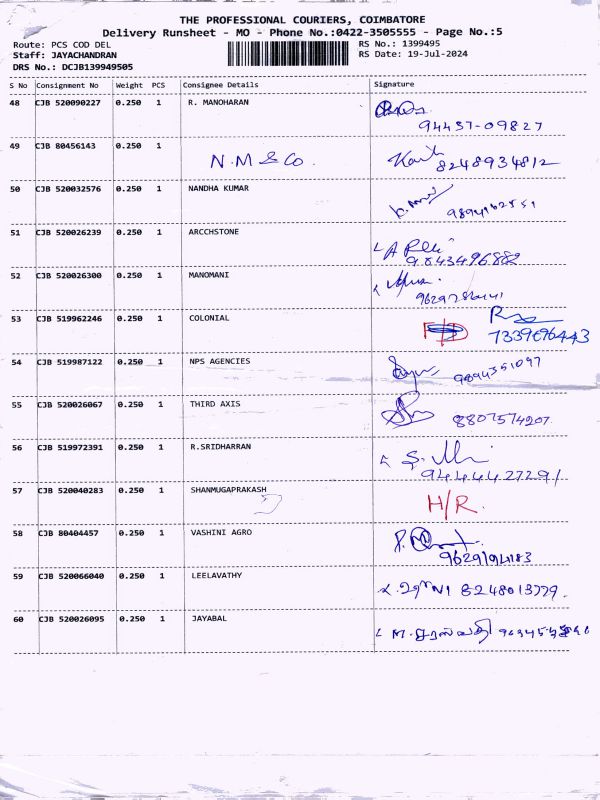 THE PROFESSIONAL COURIERS, COIMBATORE
Delivery Runsheet - MO - Phone No.:0422-3505555 - Page No.:5
Route: PCS COD DEL RS No.: 1399495
Staff: JAYACHANDRAN RS Date: 19-Jul-2024
DRS No.: DCJB139949505
S No Consignment No Weight PCS Consignee Details Signature
48 CJB 520090227 0.250 1 R. MANOHARAN
94437-09827
49 CJB 80456143 0.250 1
N.M & Co. 8248934812
50 CJB 520032576 0.250 1 NANDHA KUMAR
51 CJB 520026239 0.250 1 ARCCHSTONE
9843496882
52 CJB 520026300 0.250 1 MANOMANI
53 CJB 519962246 0.250 1 COLONIAL
7339696443
54 CJB 519987122 0.250 1 NPS AGENCIES
9894351097
55 CJB 520026067 0.250 1 THIRD AXIS
8807574207
56 CJB 519972391 0.250 1 R.SRIDHARRAN
9444427291
57 CJB 520040283 0.250 1 SHANMUGAPRAKASH
H/R.
58 CJB 80404457 0.250 1 VASHINI AGRO
9629194183
59 CJB 520066040 0.250 1 LEELAVATHY
8248013779.
60 CJB 520026095 0.250 1 JAYABAL